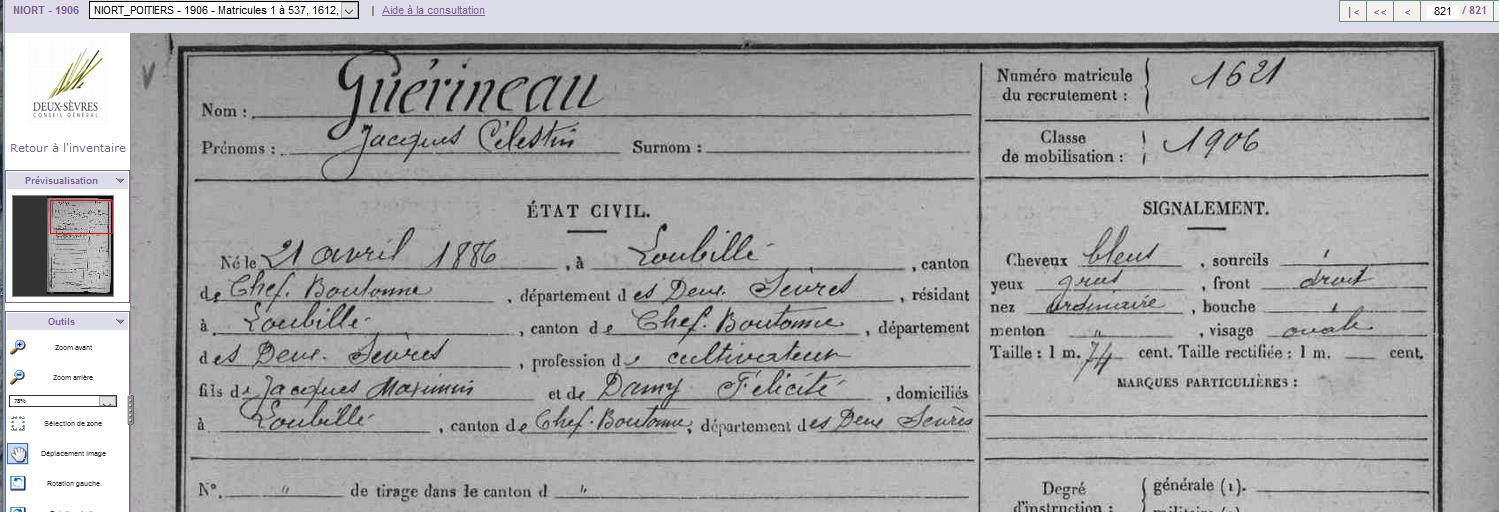 NIORT - 1906
NIORT_POITIERS - 1906 - Matricules 1 à 537, 1612,
| Aide à la consultation
|<
<<
<
821
/ 821
DEUX-SÈVRES
CONSEIL GÉNÉRAL
Retour à l'inventaire
Prévisualisation
Outils
Zoom avant
Zoom arrière
78%
Sélection de zone
Déplacement image
Rotation gauche
Nom : Guérineau
Prénoms : Jacques Célestin Surnom :
Numéro matricule
du recrutement : 1621
Classe
de mobilisation : 1906
ÉTAT CIVIL.
Né le 21 avril 1886, à Loubillé, canton
de Chef. Boutonne, département des Deux. Sèvres, résidant
à Loubillé, canton de Chef. Boutonne, département
des Deux. Sèvres, profession de cultivateur
fils de Jacques Maximin et de Damy Félicité, domiciliés
à Loubillé, canton de Chef. Boutonne, département des Deux Sèvres
N°. " de tirage dans le canton d "
SIGNALEMENT.
Cheveux bleus, sourcils
yeux gris, front droit
nez ordinaire, bouche
menton ", visage ovale
Taille : 1 m. 74 cent. Taille rectifiée : 1 m. cent.
MARQUES PARTICULIÈRES :
Degré
d'instruction :
générale (1).
militaire (2).